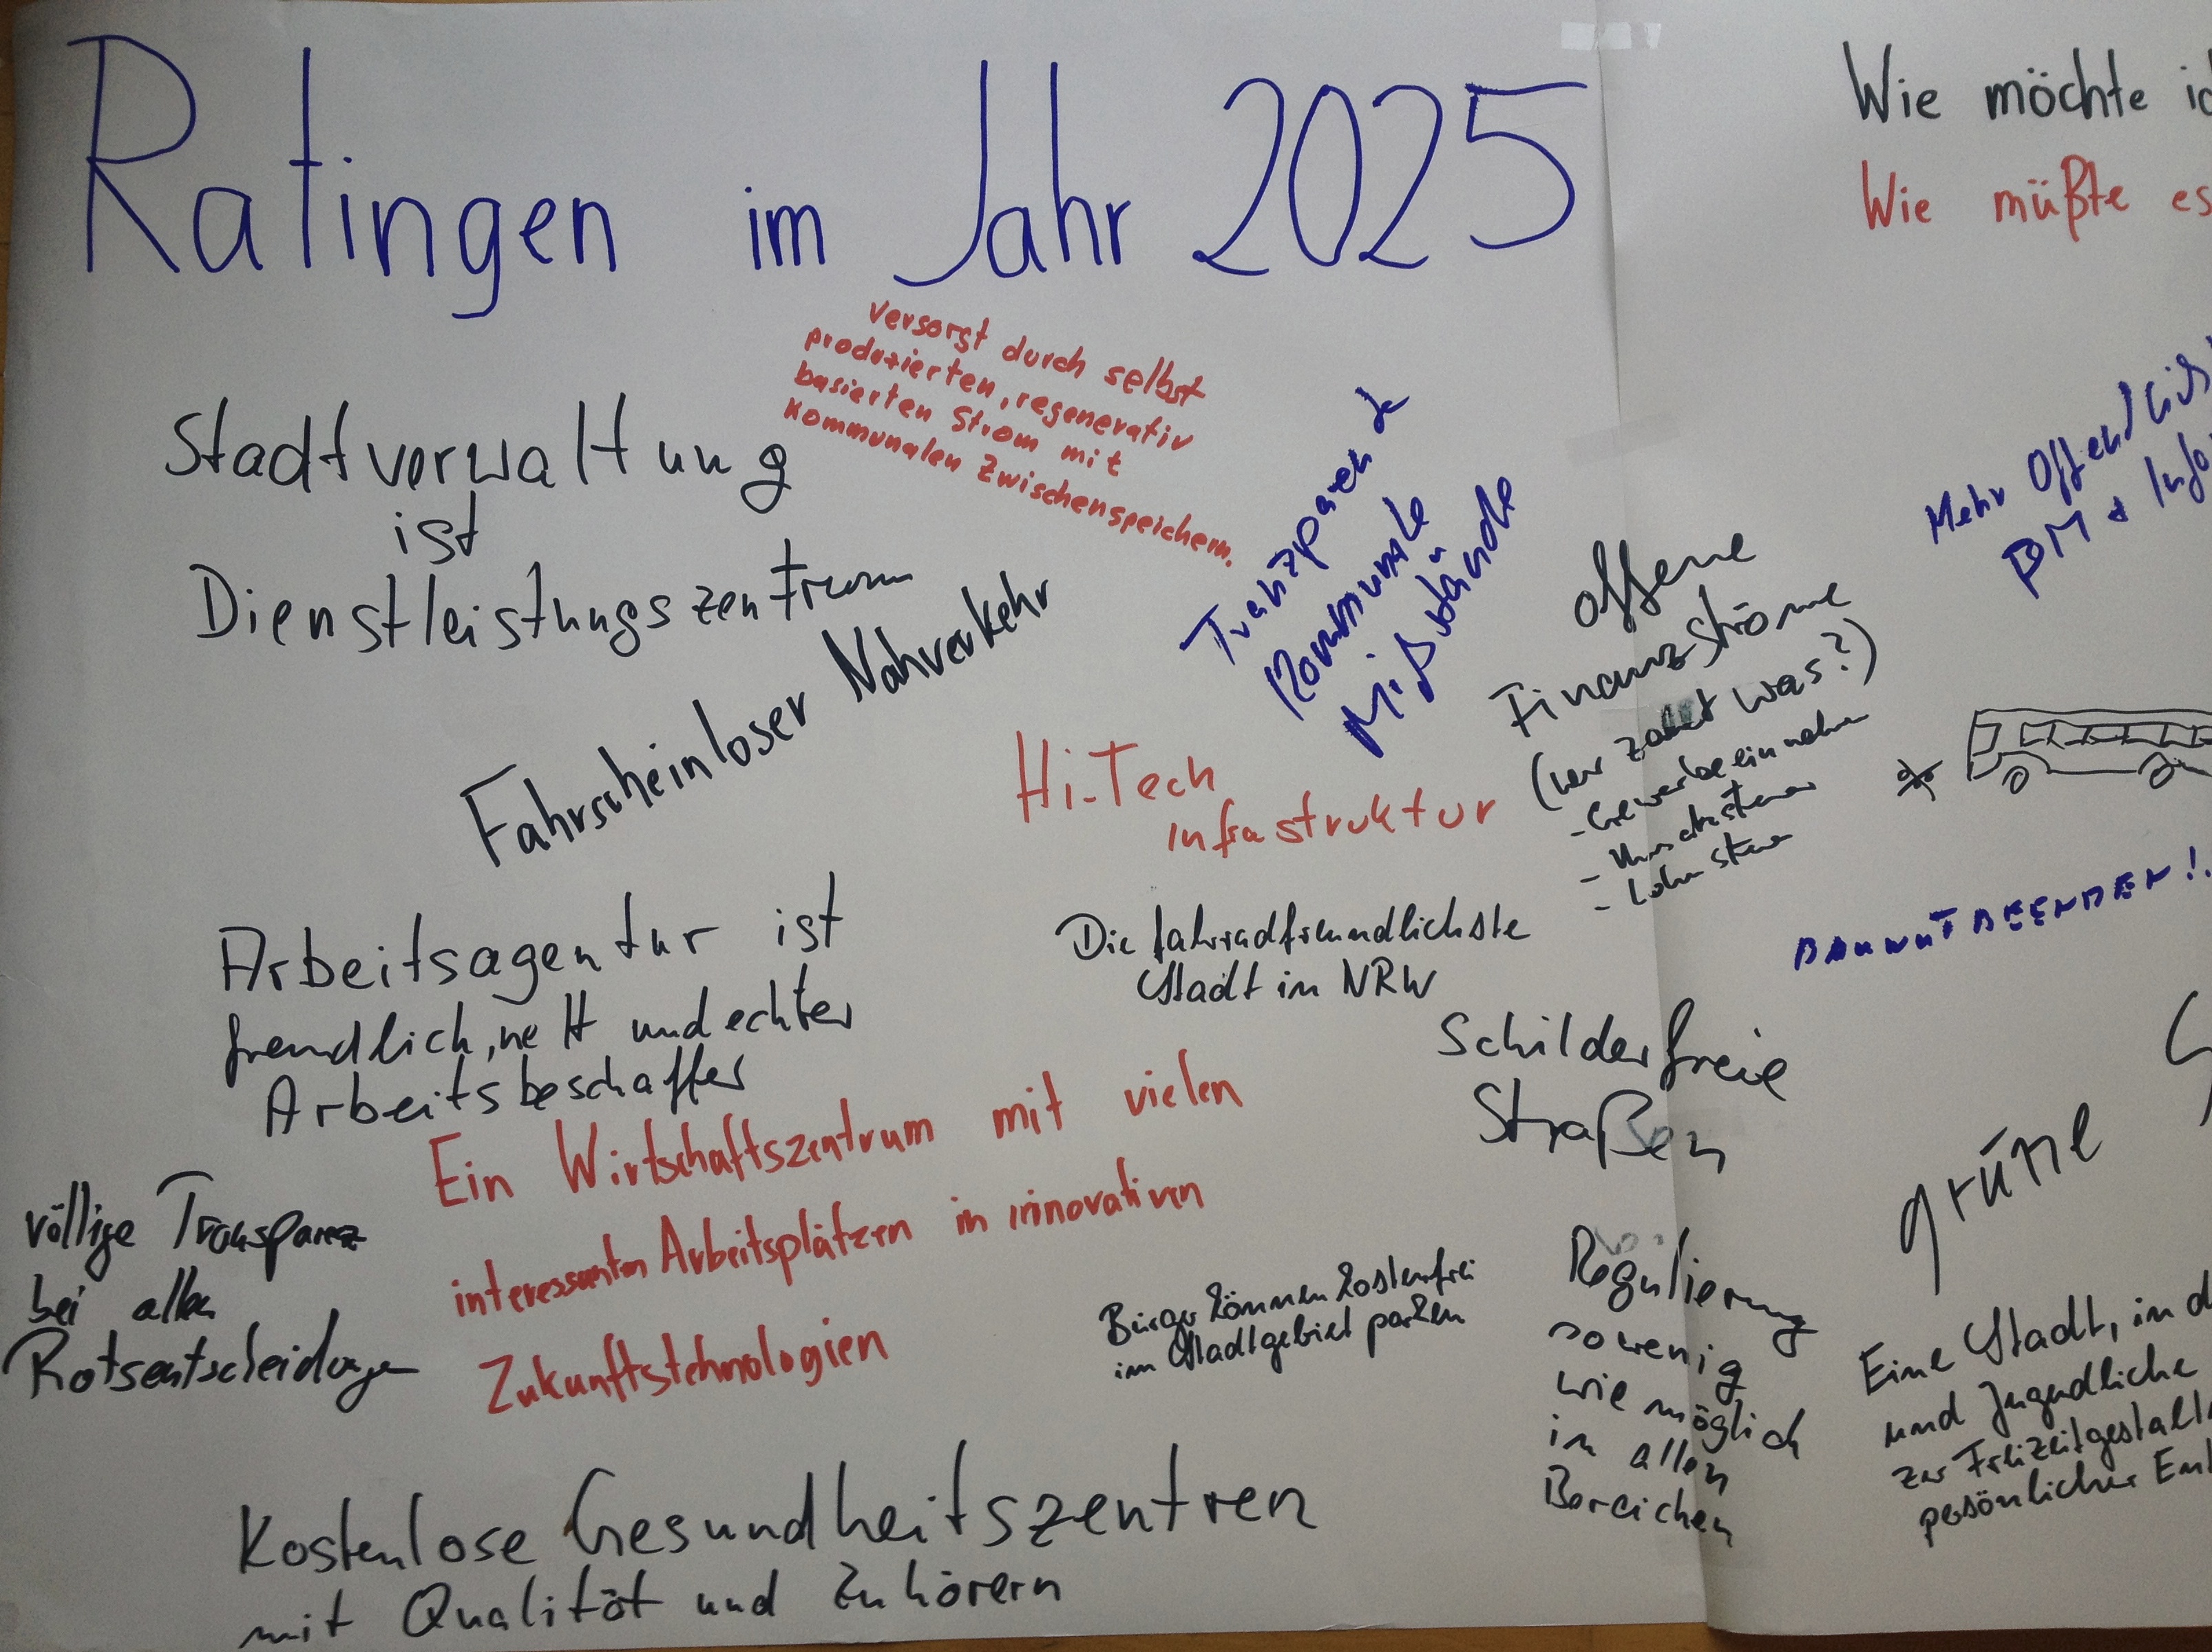 Ratingen im Jahr 2025
Wie möchte ic
Wie müßte es
versorgt durch selbst
produzierten, regenerativ
basierten Strom mit
kommunalen Zwischenspeichern.
Stadtverwaltung
ist
Dienstleistungszentrum
Fahrscheinloser Nahverkehr
Kommunale
Mißstände
offene
Finanzströme
(wer zahlt was?)
- Gewerbeeinnahmen
-
- Lohnsteuer
Mehr
BM + Info
Hi-Tech
infrastruktur
BAUWUT BEENDEN!!
Arbeitsagentur ist
freundlich, nett und echter
Arbeitsbeschaffer
Die fahrradfreundlichste
Stadt in NRW
Schilderfreie
Straßen
grüne
Ein Wirtschaftszentrum mit vielen
interessanten Arbeitsplätzen in innovativen
Zukunftstehnologien
völlige Transparenz
bei allen
Ratsentscheidungen
Bürger können kostenfrei
im Stadtgebiet parken
Regulierung
so wenig
wie möglich
in allen
Bereichen
Eine Stadt, in d
und Jugendliche
zur Freizeitgestalt
persönlicher Ent
Kostenlose Gesundheitszentren
mit Qualität und Zuhörern